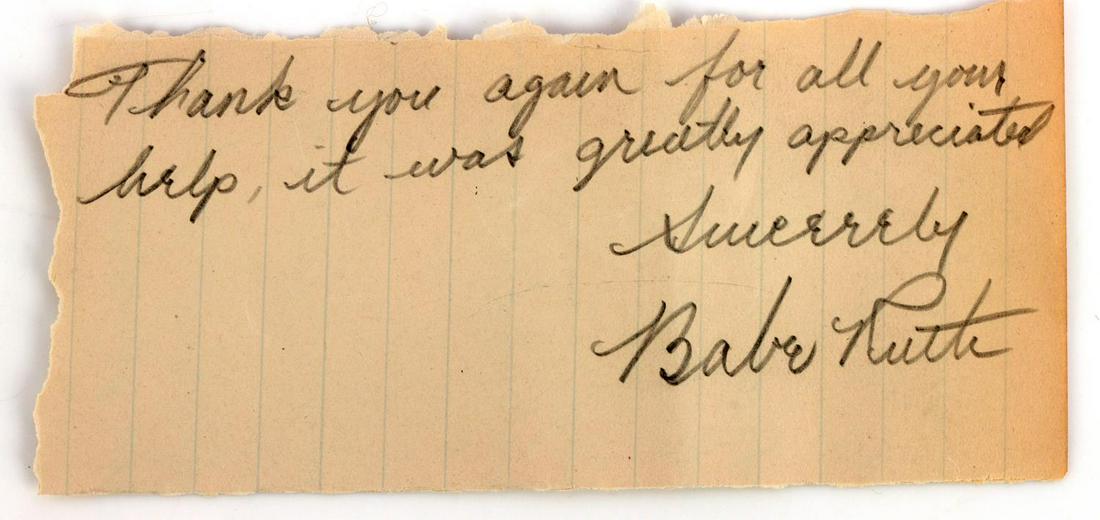 Thank you again for all your
help, it was greatly appreciated
Sincerely
Babe Ruth